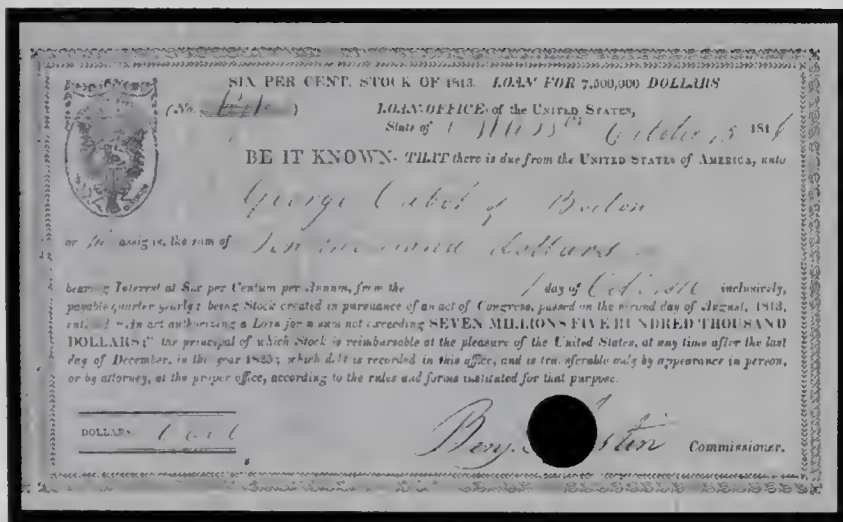 SIX PER CENT. STOCK OF 1813. LOAN FOR 7,500,000 DOLLARS
(No. )
LOAN OFFICE of the UNITED STATES,
State of Mass October 1816
BE IT KNOWN THAT there is due from the UNITED STATES of AMERICA, unto
George Cabot of Boston
or his assigns, the sum of Ten thousand dollars
bearing Interest at Six per Centum per Annum, from the 1 day of October inclusively,
payable quarter yearly; being Stock created in pursuance of an act of Congress, passed on the second day of August, 1813,
entitled "An act authorizing a Loan for a sum not exceeding SEVEN MILLIONS FIVE HUNDRED THOUSAND
DOLLARS;" the principal of which Stock is reimbursable at the pleasure of the United States, at any time after the last
day of December, in the year 1825; which debt is recorded in this office, and is transferable only by appearance in person,
or by attorney, at the proper office, according to the rules and forms instituted for that purpose.
DOLLARS
Benj. Commissioner.